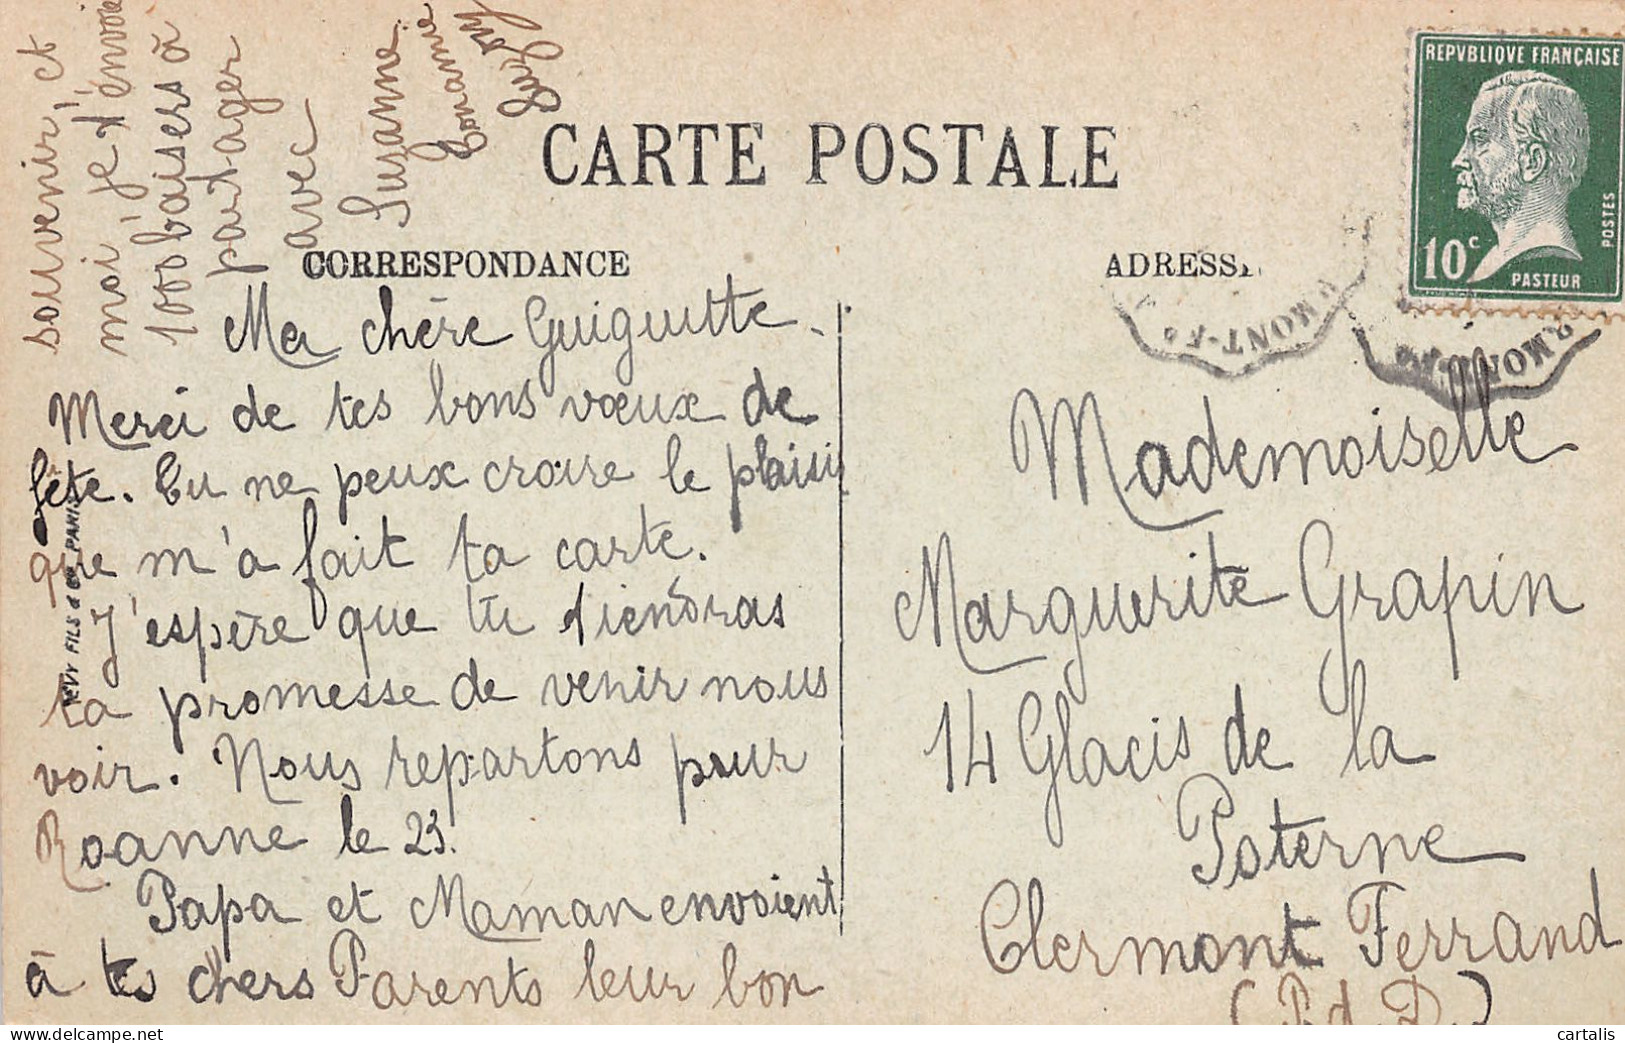 CARTE POSTALE
CORRESPONDANCE
ADRESSE
REPVBLIQVE FRANÇAISE
POSTES
10c
PASTEUR
Ma chère Guiguitte
Merci de tes bons vœux de
fête. Tu ne peux croire le plaisir
que m'a fait ta carte.
J'espère que tu tiendras
ta promesse de venir nous
voir. Nous repartons pour
Roanne le 23.
Papa et Maman envoient
à tes chers Parents leur bon
souvenir, et
moi je t'envoie
1000 baisers à
partager
avec
Suzanne
Mademoiselle
Marguerite Grapin
14 Glacis de la
Poterne
Clermont Ferrand
(P. d. D.)
LEVY FILS & Cie PARIS
cartalis